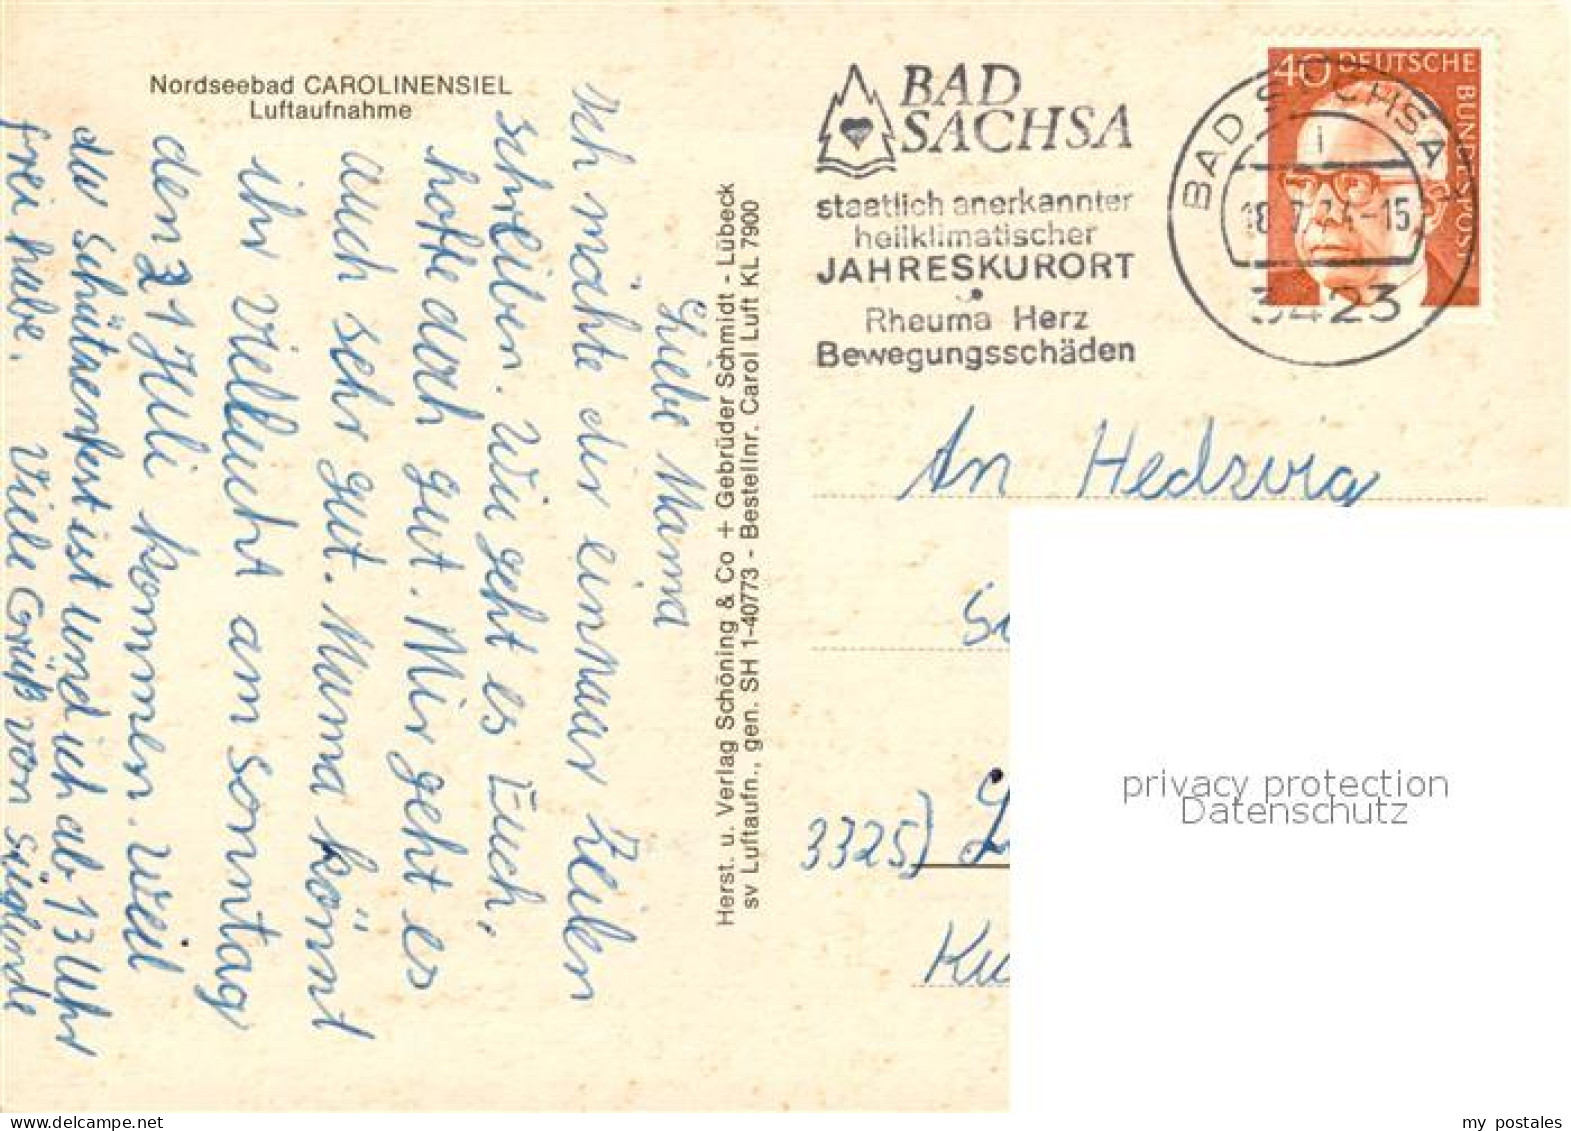 Nordseebad CAROLINENSIEL
Luftaufnahme
Liebe Mama
Ich möchte dir ein paar Zeilen
schreiben. Wie geht es Euch,
hoffe doch gut. Mir geht es
auch sehr gut. Mama könnt
ihr vielleicht am Sonntag
den 21 Juli kommen. Weil
da Schützenfest ist und ich ab 13 Uhr
frei habe. Viele Grüß von Siglinde
Herst. u. Verlag Schöning & Co + Gebrüder Schmidt - Lübeck
sv Luftaufn., gen. SH 1-40773 - Bestellnr. Carol Luft KL 7900
BAD
SACHSA
staatlich anerkannter
heilklimatischer
JAHRESKURORT
Rheuma Herz
Bewegungsschäden
BAD SACHSA 1
18.7.74-15
3423
40 DEUTSCHE
BUNDESPOST
An Hedwig
3325)
privacy protection
Datenschutz
my postales